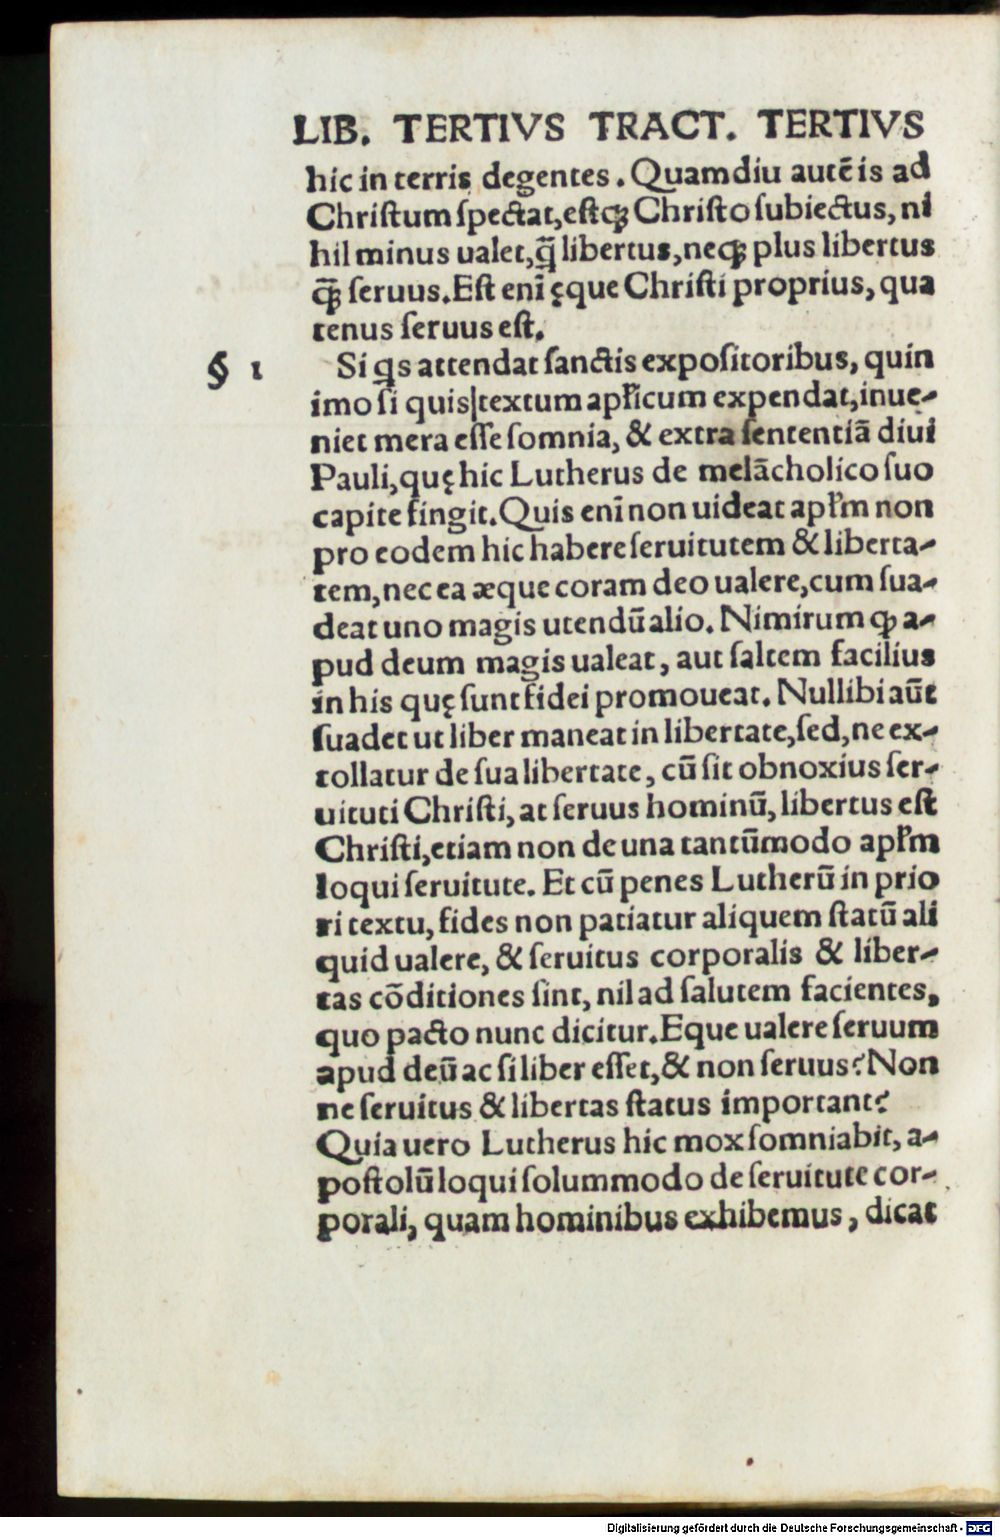 LIB. TERTIVS TRACT. TERTIVS
hic in terris degentes. Quamdiu autẽ is ad
Chriſtum ſpectat, eſtqȝ Chriſto ſubiectus, ni
hil minus ualet, q̃ libertus, neqȝ plus libertus
q̃ȝ ſeruus. Eſt enĩ ęque Chriſti proprius, qua
tenus ſeruus eſt.
§ 1 Si qs attendat ſanctis expoſitoribus, quin
imo ſi quis|textum apl̃icum expendat, inue-
niet mera eſſe ſomnia, & extra ſententiã diui
Pauli, quę hic Lutherus de melãcholico ſuo
capite fingit. Quis enĩ non uideat apl̃m non
pro eodem hic habere ſeruitutem & liberta-
tem, nec ea æque coram deo ualere, cum ſua-
deat uno magis utendũ alio. Nimirum ꝙ a-
pud deum magis ualeat, aut ſaltem facilius
in his quę ſunt fidei promoueat. Nullibi aũt
ſuadet ut liber maneat in libertate, ſed, ne ex-
tollatur de ſua libertate, cũ ſit obnoxius ſer-
uituti Chriſti, at ſeruus hominũ, libertus eſt
Chriſti, etiam non de una tantũmodo apl̃m
loqui ſeruitute. Et cũ penes Lutherũ in prio
ri textu, fides non patiatur aliquem ſtatũ ali
quid ualere, & ſeruitus corporalis & liber-
tas cõditiones ſint, nil ad ſalutem facientes,
quo pacto nunc dicitur. Eque ualere ſeruum
apud deũ ac ſi liber eſſet, & non ſeruus? Non
ne ſeruitus & libertas ſtatus important?
Quia uero Lutherus hic mox ſomniabit, a-
poſtolũ loqui ſolummodo de ſeruitute cor-
porali, quam hominibus exhibemus, dicat
Digitalisierung gefördert durch die Deutsche Forschungsgemeinschaft - DFG